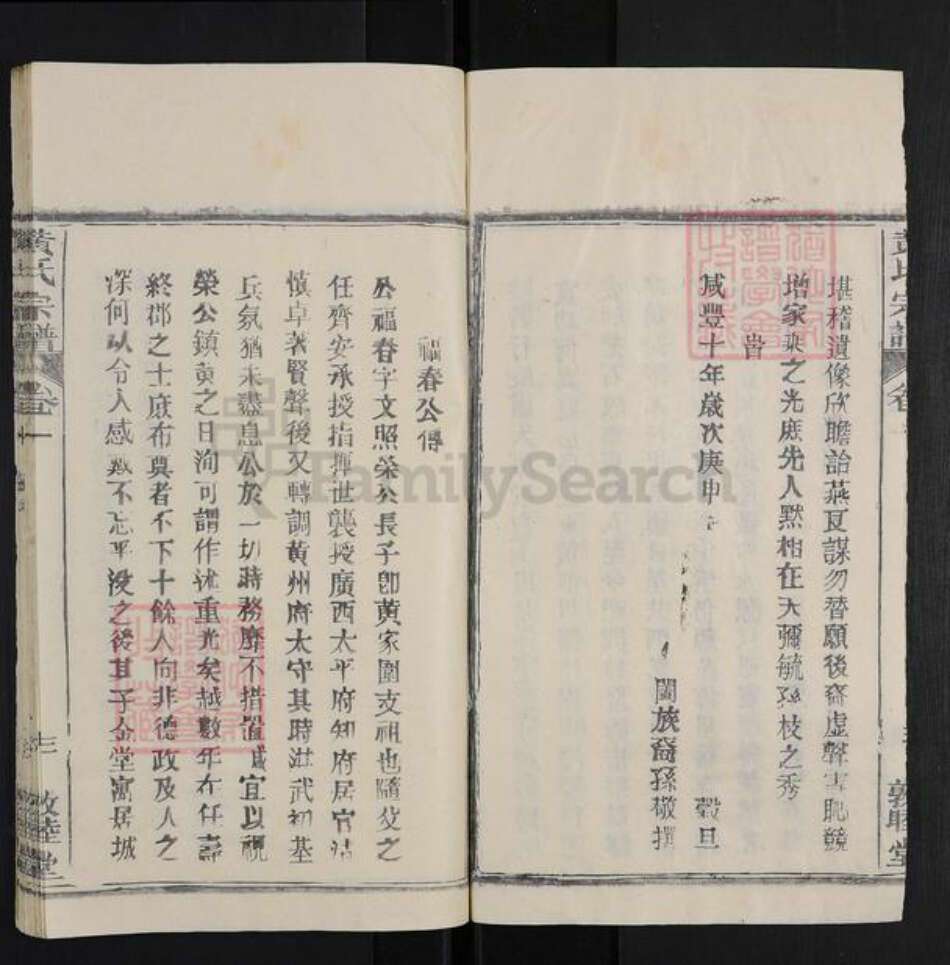 堪稽遺像欣瞻詒燕瓦謀勿替願後裔虛聲害恥競
增家乘之光庶先人默相在天彌毓孫枝之秀
旹
咸豐十年歲次庚申 穀旦
闔族裔孫敬撰
黃氏宗譜 卷
敦睦堂
福春公傳
公福春字文照榮公長子卽黃家園支祖也隨父之
任齊安承授指揮世襲授廣西太平府知府居官沽
慎卓著賢聲後又轉調黃州府太守其時洪武初基
兵氛猶未盡息公於一切時務靡不措置咸宜以視
榮公鎮黃之日洵可謂作述重光矣越數年在任壽
終郡之士庶布奠者不下十餘人向非德政及人之
深何以令人感慕不忘乎沒之後其子金堂寓居城
黃氏宗譜 卷 一
三
敦睦堂
FamilySearch